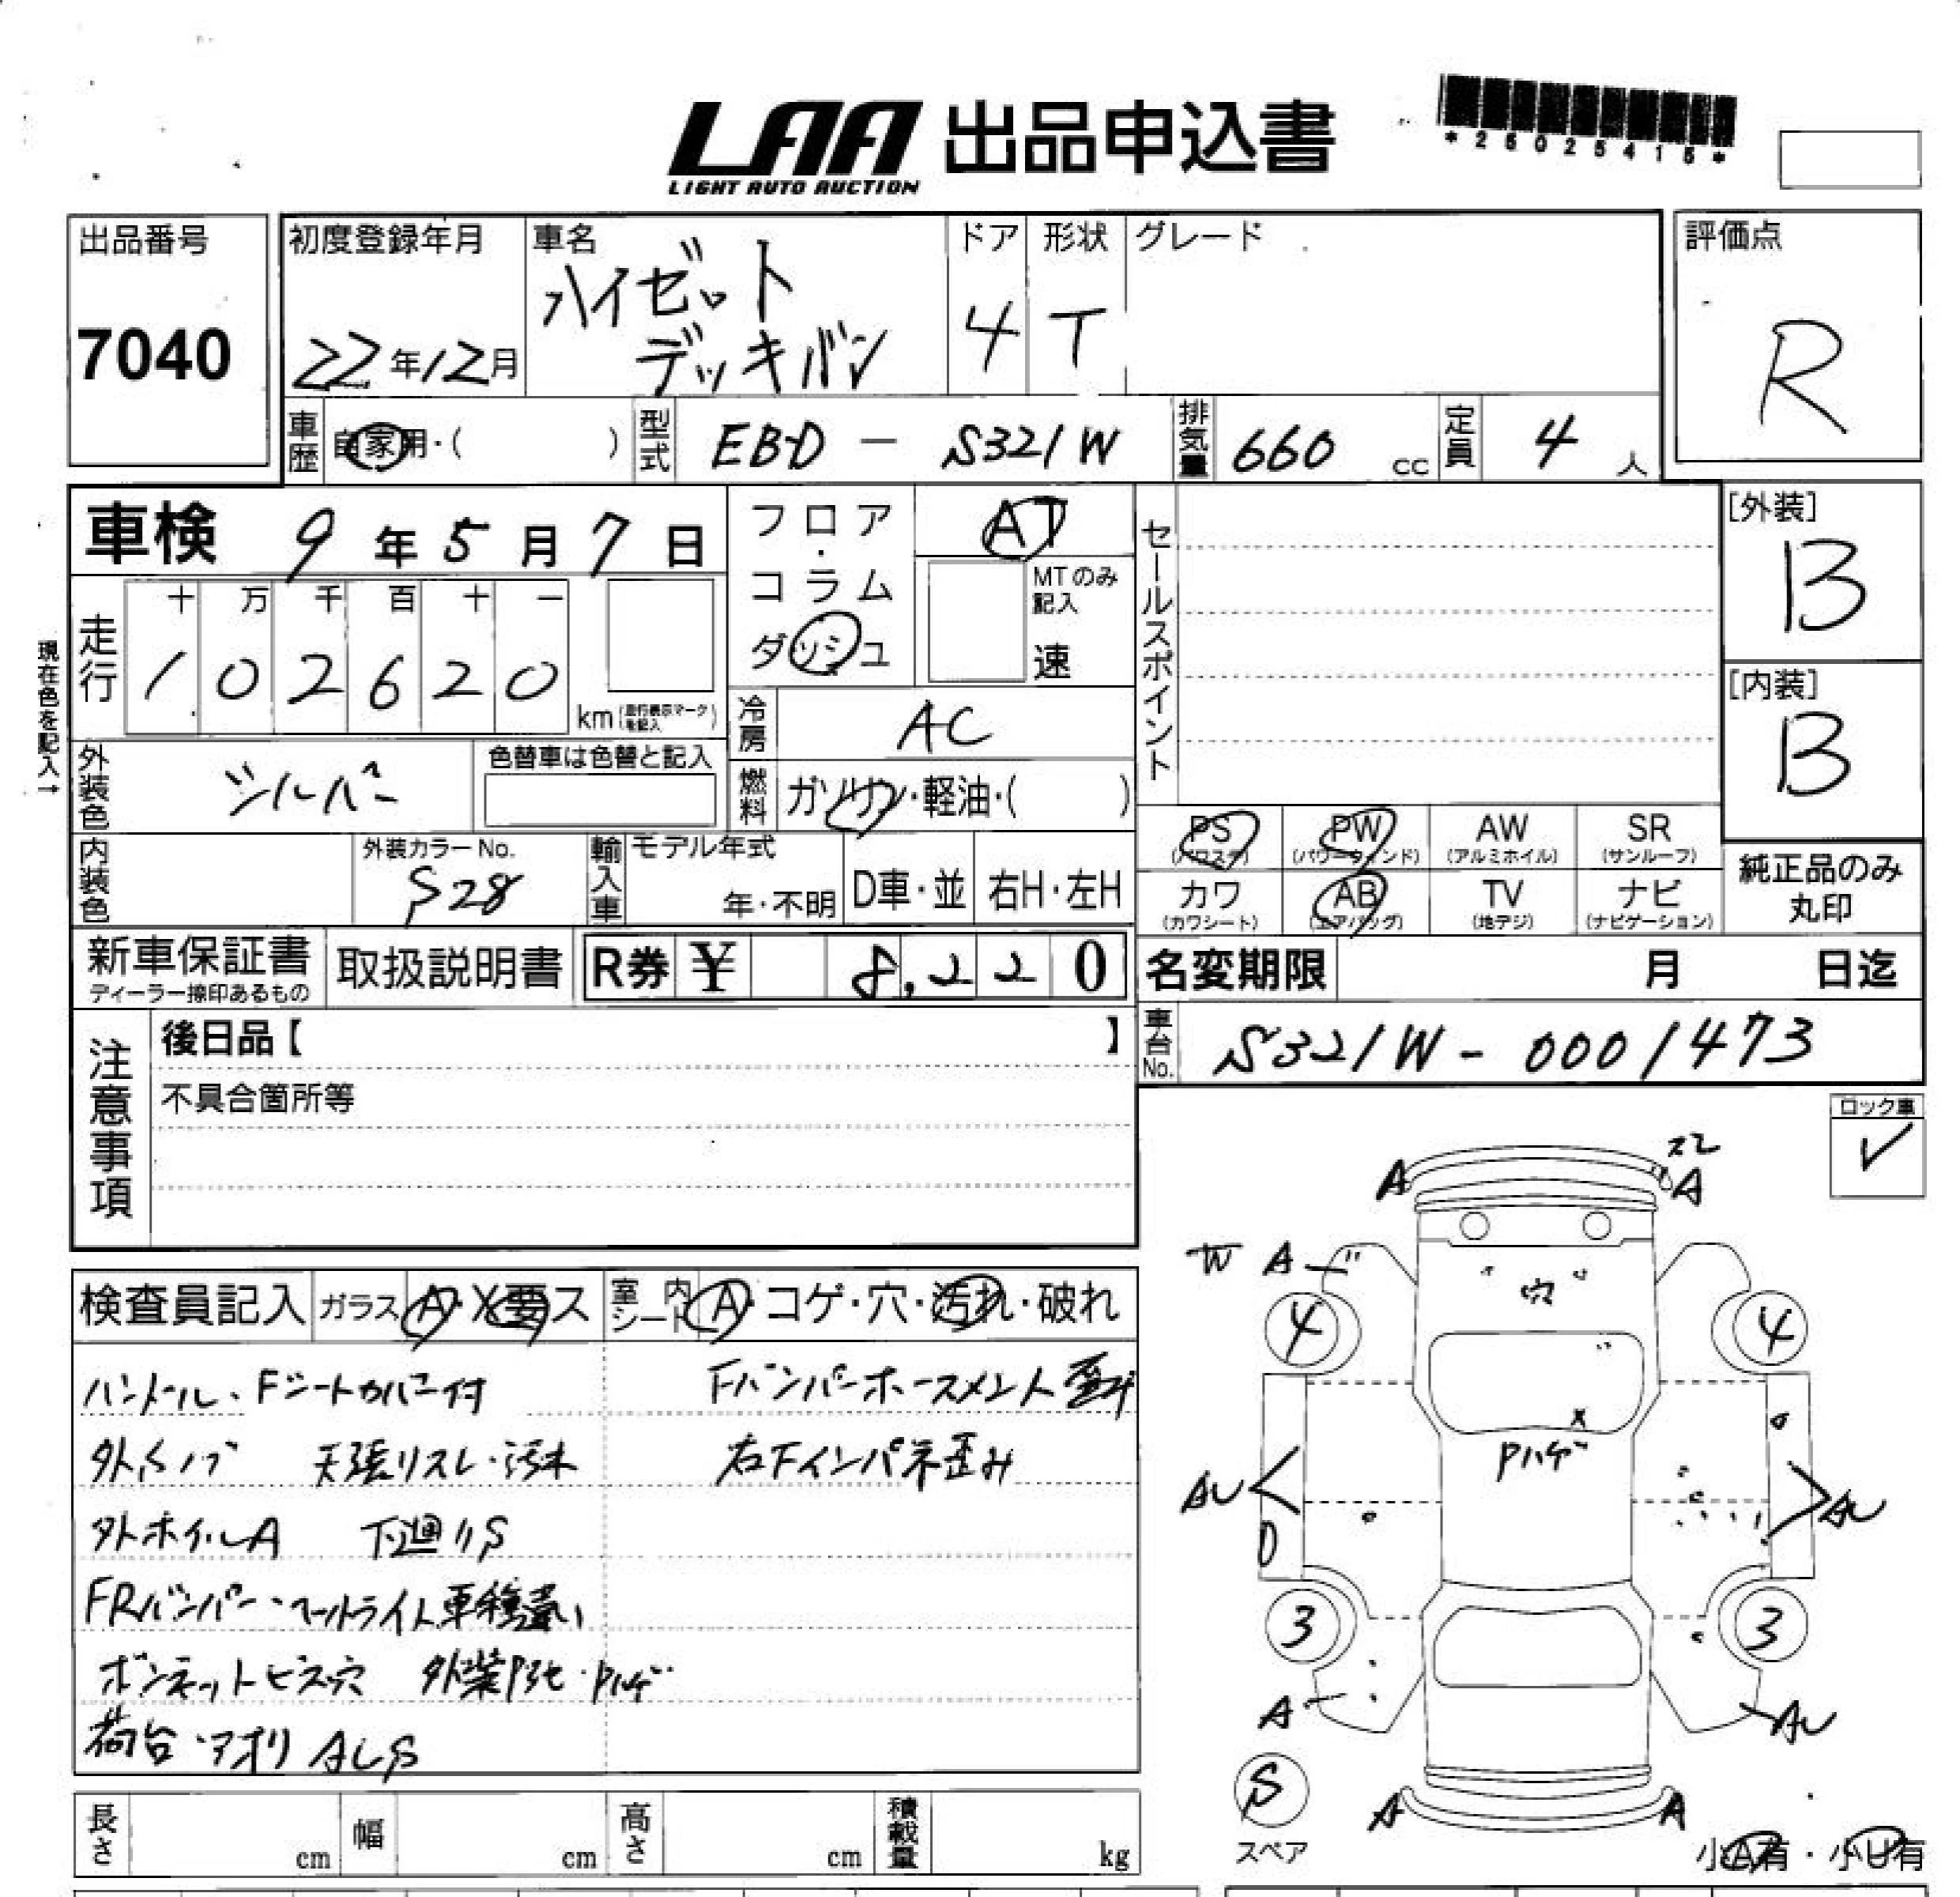 LAA 出品申込書
LIGHT AUTO AUCTION
*26025415*
出品番号
7040
初度登録年月
22年12月
車名
ハイゼット
デッキバン
ドア
4
形状
T
グレード
評価点
R
車歴 自家用・( )
型式 EBD - S321W
排気量 660 cc
定員 4 人
車検 9年5月7日
フロア・コラム
ダッシュ
AT
MTのみ記入
速
セールスポイント
[外装]
B
[内装]
B
現在色を記入→
走行
十 万 千 百 十 一
1 0 2 6 2 0
km(走行表示マークを記入)
冷房 AC
外装色 シルバー
色替車は色替と記入
燃料 ガソリン・軽油・( )
PS
(パワステ)
PW
(パワーウインド)
AW
(アルミホイル)
SR
(サンルーフ)
内装色
外装カラーNo.
S28
輸入車
モデル年式
年・不明
D車・並
右H・左H
カワ
(カワシート)
AB
(エアバッグ)
TV
(地デジ)
ナビ
(ナビゲーション)
純正品のみ
丸印
新車保証書
ディーラー捺印あるもの
取扱説明書
R券 ¥ 8,220
名変期限 月 日迄
注意事項
後日品【 】
不具合箇所等
車台No. S321W-0001473
ロック車
✓
検査員記入 ガラス A・X要ス
室内シート A・コゲ・穴・汚れ・破れ
ハンドル、Fシートカバー付
Fバンパーホースメント歪み
天張リスレ・汚れ
右Fインパネ歪み
外ホイールA 下廻りS
FRバンパー・ヘッドライト車種違い
ボンネットビス穴 外装 Pハゲ
荷台・アオリ ALS
A
スレ
A
W A
穴
4
4
X
Pハゲ
AU
AU
3
3
A
AU
S
スペア
A
A
小A有・小U有
長さ cm
幅 cm
高さ cm
積載量 kg